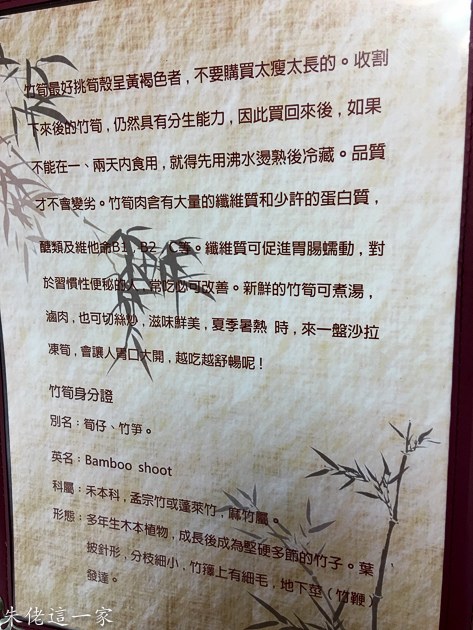 竹筍最好挑筍殼呈黃褐色者，不要購買太瘦太長的。收割
下來後的竹筍，仍然具有分生能力，因此買回來後，如果
不能在一、兩天內食用，就得先用沸水燙熟後冷藏。品質
才不會變劣。竹筍肉含有大量的纖維質和少許的蛋白質，
醣類及維他命B1、B2、C等。纖維質可促進胃腸蠕動，對
於習慣性便秘的人，常吃必可改善。新鮮的竹筍可煮湯，
滷肉，也可切絲炒，滋味鮮美，夏季暑熱 時，來一盤沙拉
凍筍，會讓人胃口大開，越吃越舒暢呢！
竹筍身分證
別名：筍仔、竹笋。
英名：Bamboo shoot
科屬：禾本科，孟宗竹或蓬萊竹，麻竹屬。
形態：多年生木本植物，成長後成為堅硬多節的竹子。葉
披針形，分枝細小，竹籜上有細毛，地下莖（竹鞭）
發達。
朱佬這一家